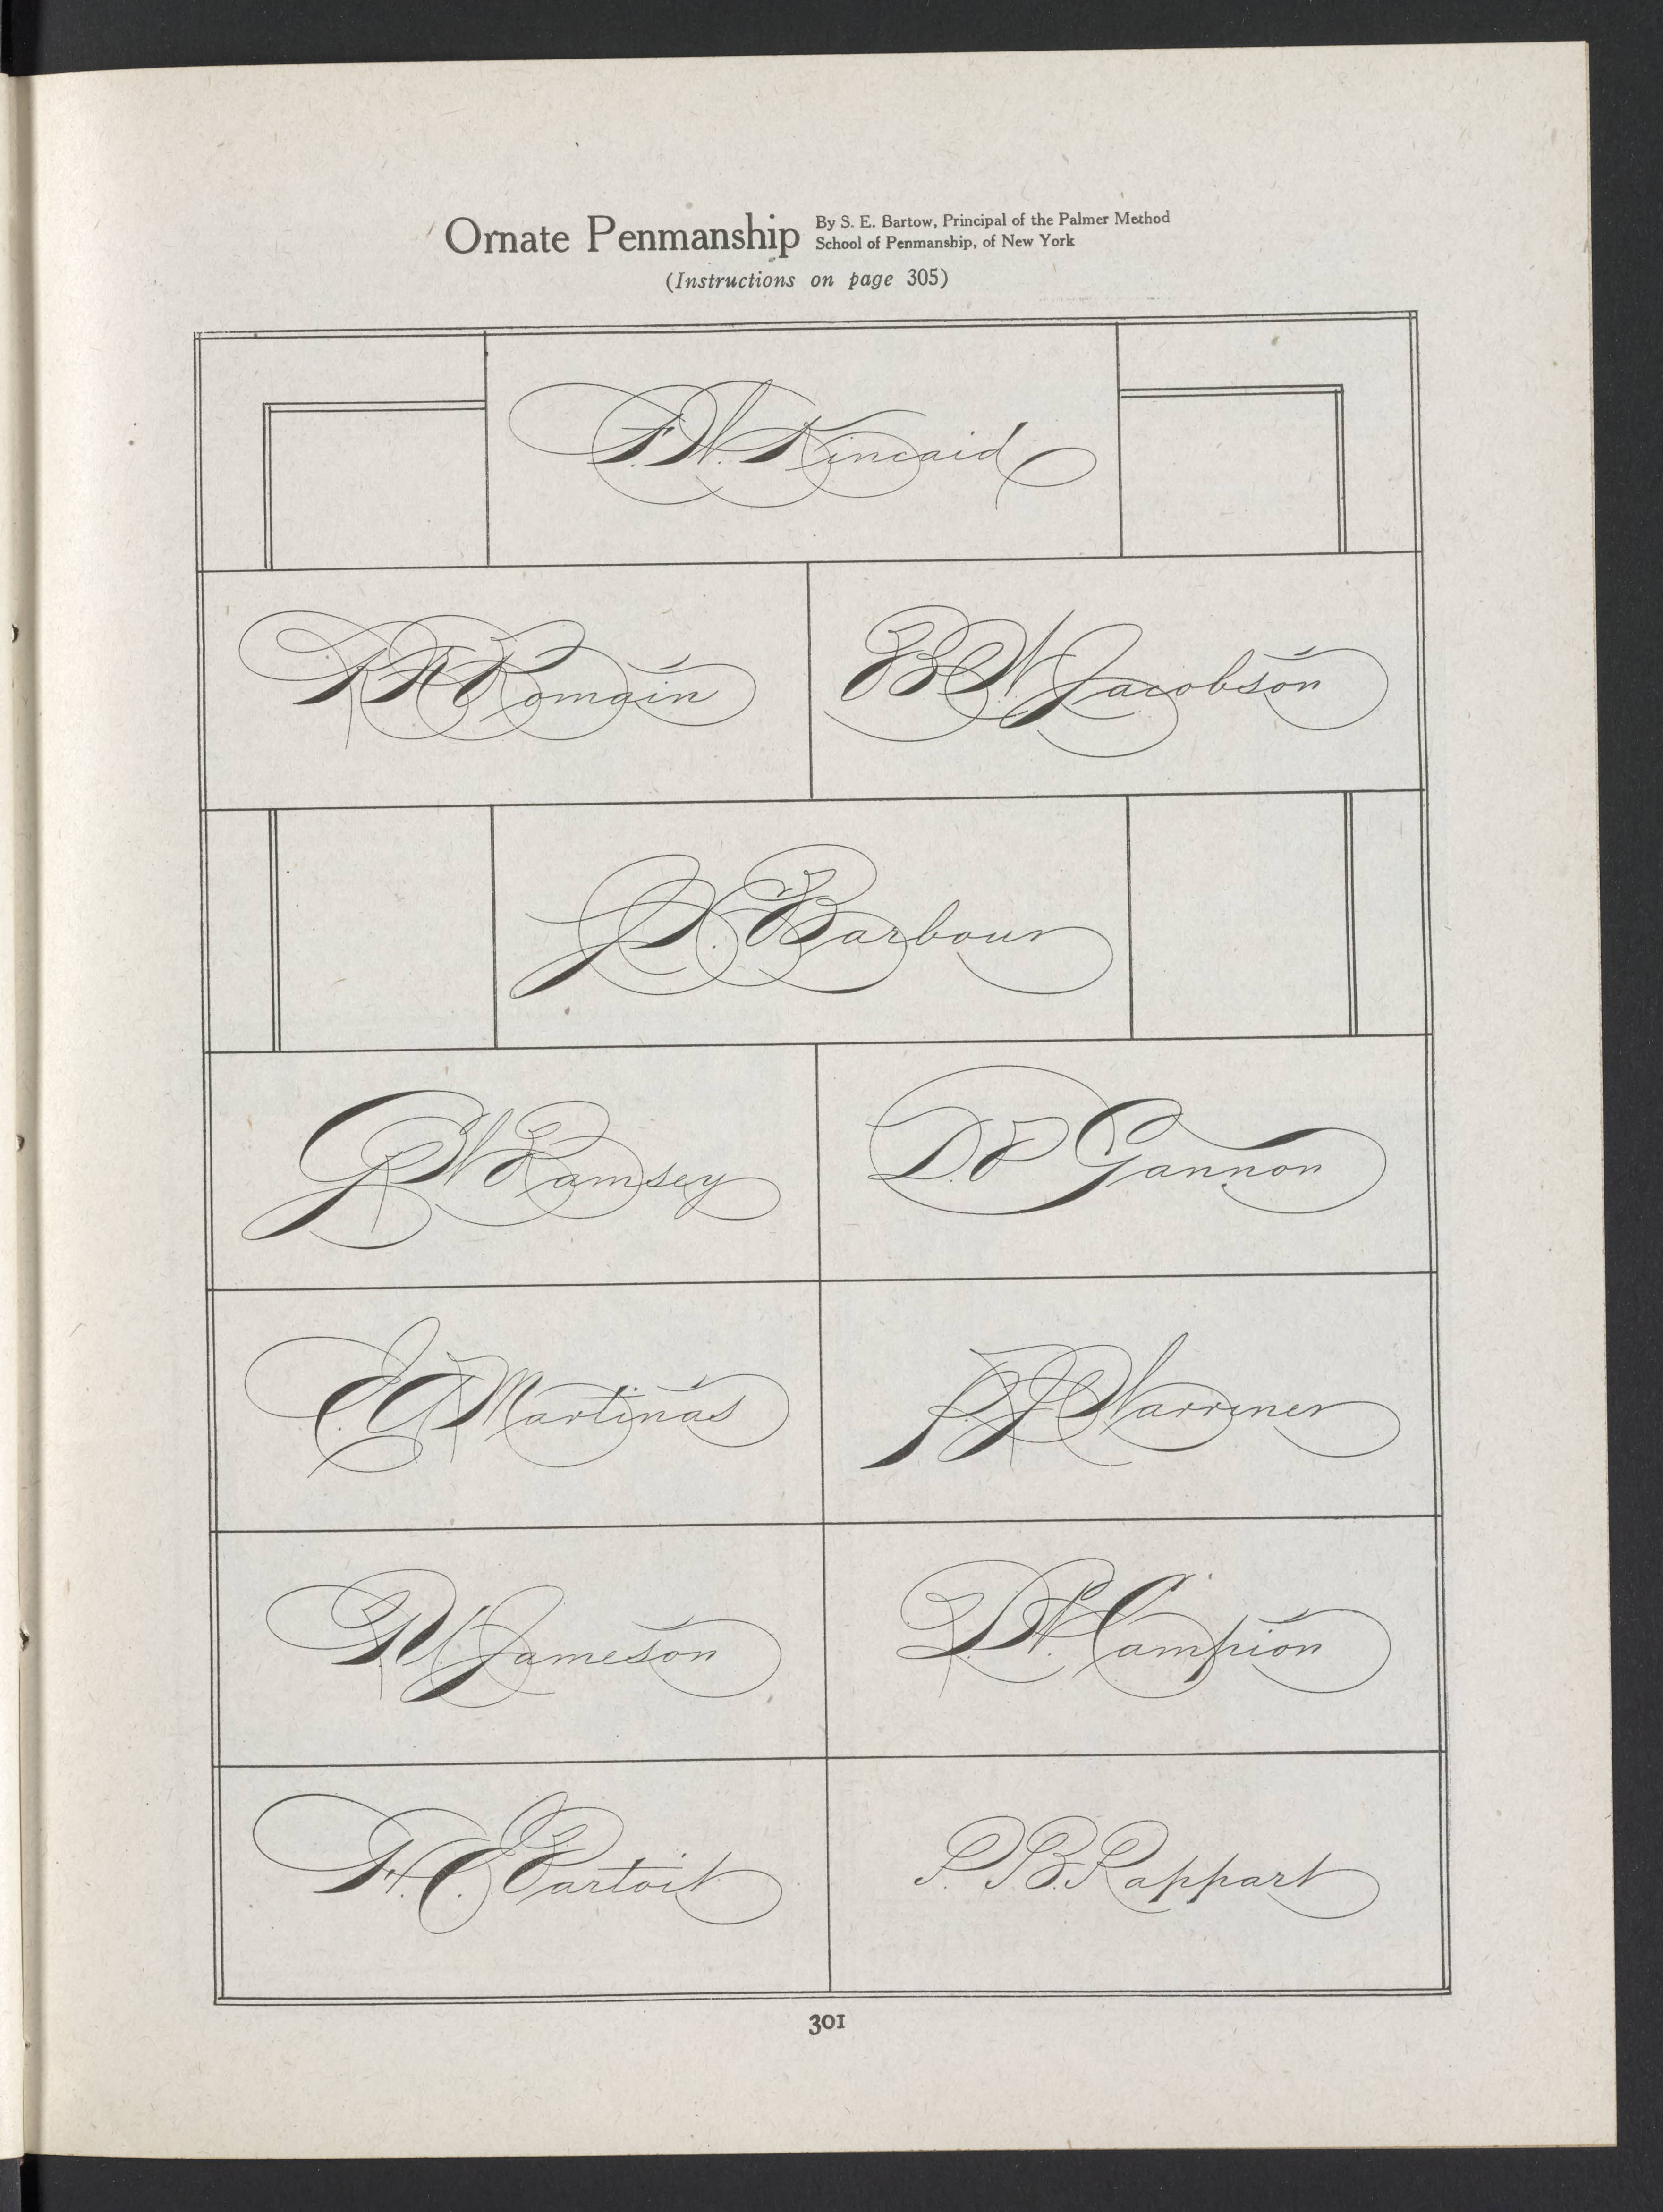 Ornate Penmanship
By S. E. Bartow, Principal of the Palmer Method
School of Penmanship, of New York
(Instructions on page 305)
F. W. Kincaid
Romain
B W Jacobson
Barbour
G W Ramsey
D. P Gannon
E. G Martinas
Warriner
Jameson
D. W. Campion
F. C. Partoit
P. B. Rappart
301